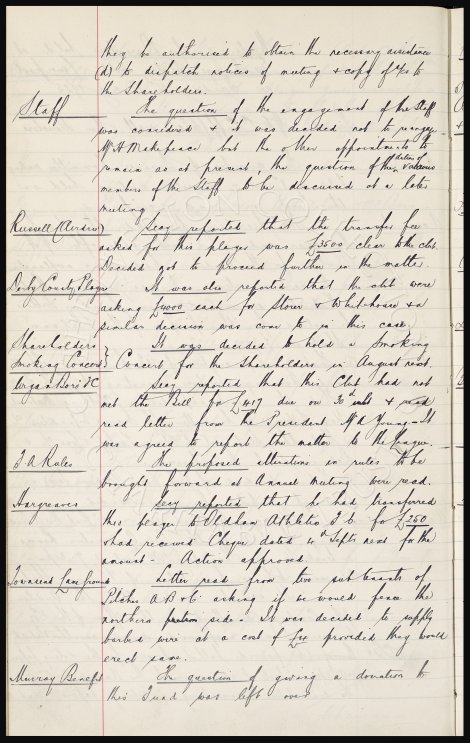 they be authorised to obtain the necessary assistance
(d) to dispatch notices of meeting & copy of a/cs to
the Shareholders.
Staff
The question of the engagement of the Staff
was considered & it was decided not to reengage
W H Makepeace but the other appointments to
remain as at present, the question of the duties of various
members of the Staff to be discussed at a later
meeting
Russell (Airdrie)
Secy reported that the transfer fee
asked for this player was £3500 clear to the club.
Decided not to proceed further in the matter
Derby County Player
It was also reported that the club were
asking £4000 each for Storer & Whitehouse & a
similar decision was come to in this case.
Shareholders
Smoking Concert
It was decided to hold a Smoking
Concert for the Shareholders in August next.
Secy reported that this Club had not
met the Bill for £417 due on 30th & read
read letter from the President Mr A Young - It
was agreed to report the matter to the League.
F A Rules
The proposed alterations in rules to be
brought forward at Annual meeting were read.
Hargreaves
Secy reported that he had transferred
this player to Oldham Athletic F C for £250
& had received Cheque dated 4th Septr next for the
amount - Action approved.
Townsend Lane Ground
Letter read from two sub tenants of
Pitches A B & C asking if we would fence the
northern side. It was decided to supply
barbed wire at a cost of £4 provided they would
erect same.
Murray Benefit
The question of giving a donation to
this Fund was left over